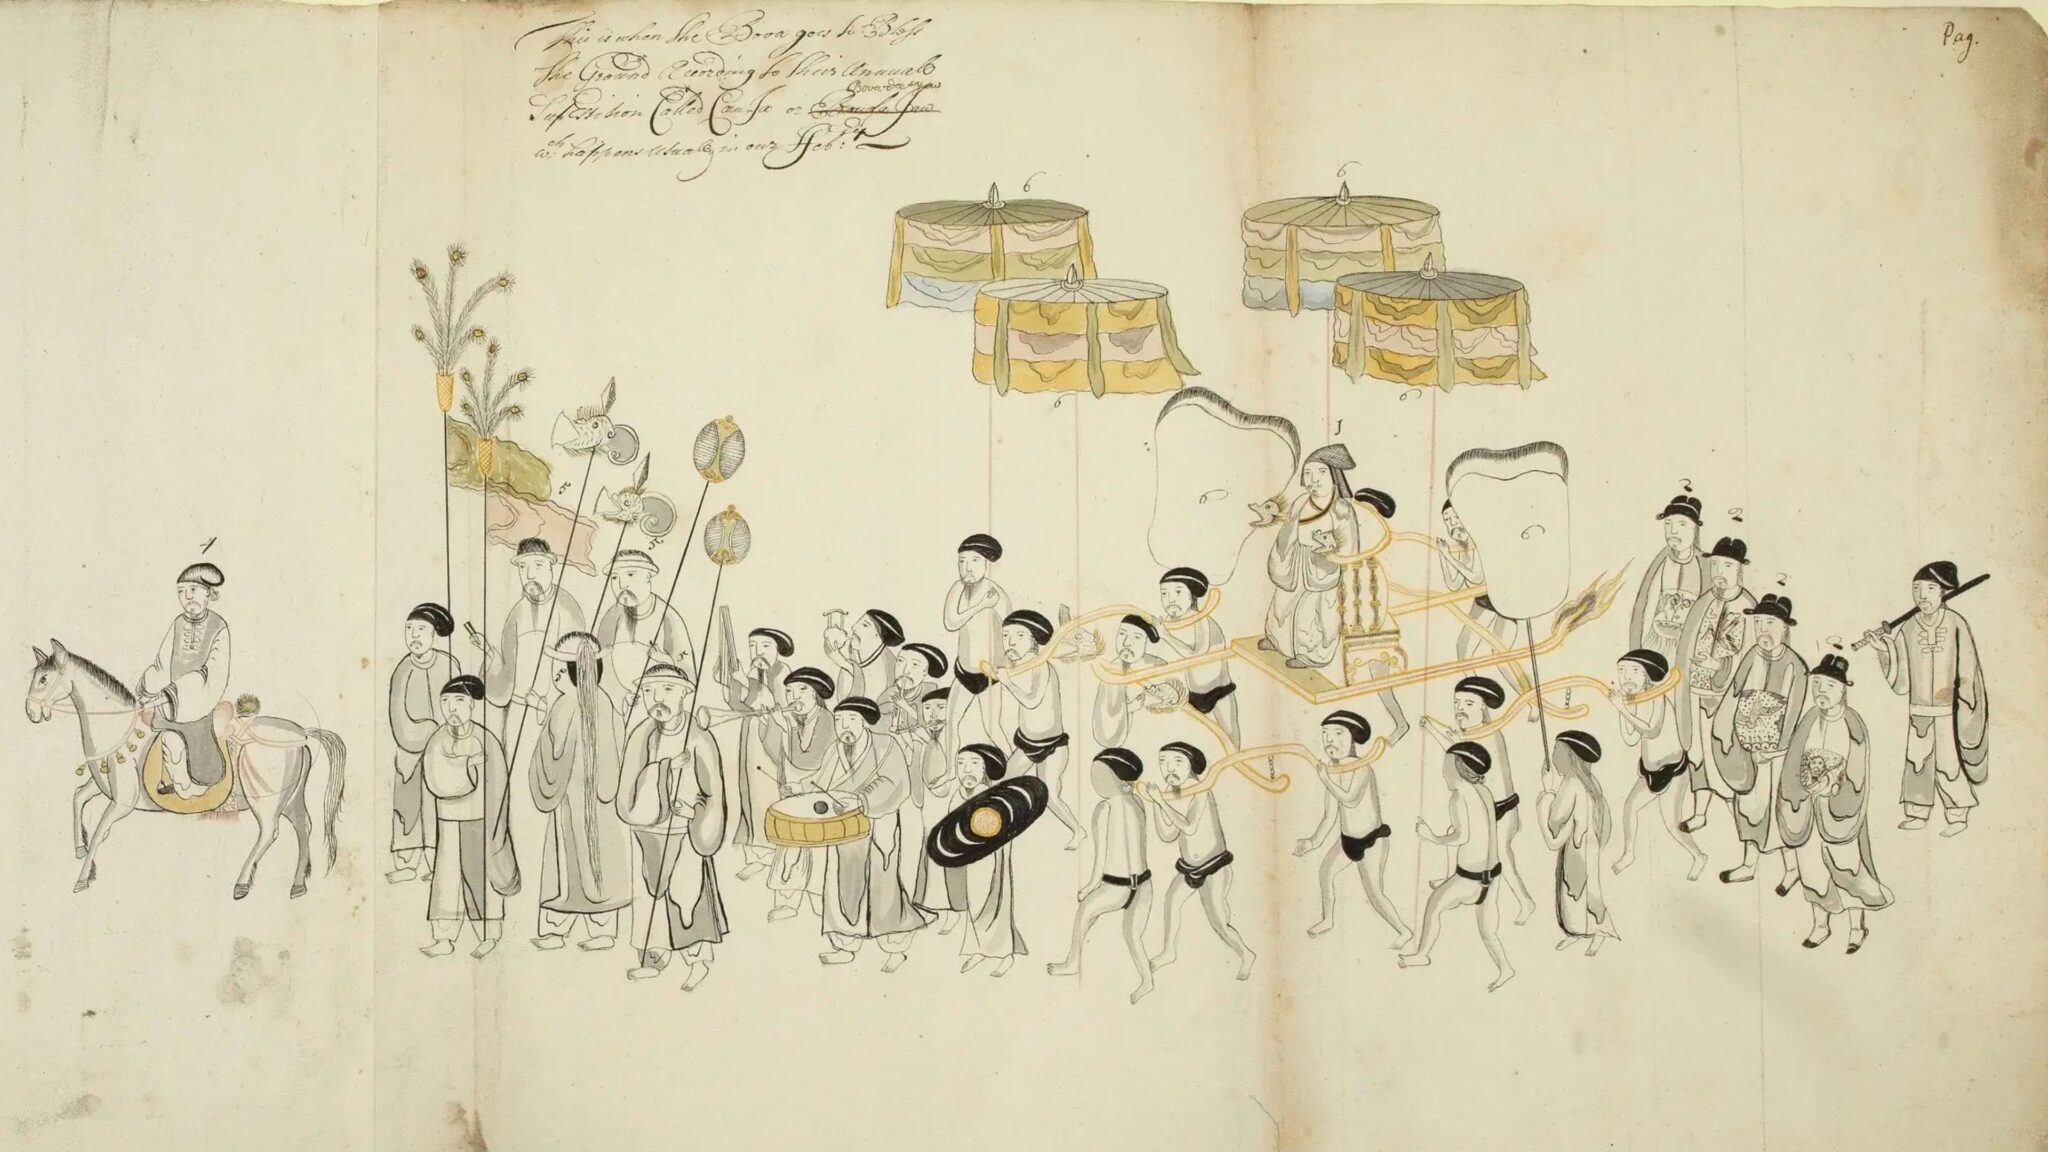 This is when the Bova goes to Bless
the Ground According to their Annuale
Superstition Called CanJa or
wch. happens usually in our Feb:
Pag.
6
6
6
6
1
2
2
2
2
4
5
5